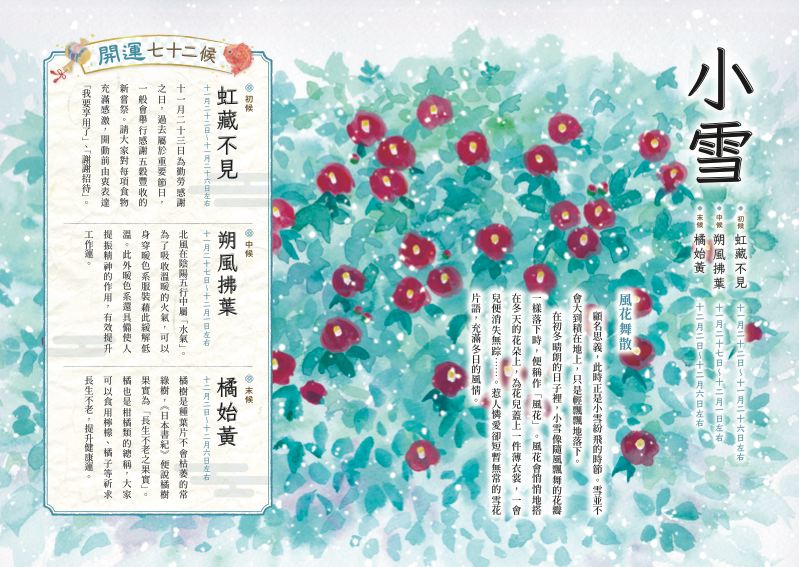 小雪
初候 虹藏不見 十一月二十二日~十一月二十六日左右
中候 朔風拂葉 十一月二十七日~十二月一日左右
末候 橘始黃 十二月二日~十二月六日左右
風花舞散
顧名思義，此時正是小雪紛飛的時節。雪並不
會大到積在地上，只是輕飄飄地落下。
在初冬晴朗的日子裡，小雪像隨風飄舞的花瓣
一樣落下時，便稱作「風花」。風花會悄悄地搭
在冬天的花朵上，為花兒蓋上一件薄衣裳，一會
兒便消失無踪……。惹人憐愛卻短暫無常的雪花
片語，充滿冬日的風情。
開運七十二候
初候
虹藏不見
十一月二十二日~十一月二十六日左右
十一月二十三日為勤勞感謝
之日，過去屬於重要節日，
一般會舉行感謝五穀豐收的
新嘗祭。請大家對每項食物
充滿感激，開動前由衷表達
「我要享用了」、「謝謝招待」。
中候
朔風拂葉
十一月二十七日~十二月一日左右
北風在陰陽五行中屬「水氣」。
為了吸收溫暖的火氣，可以
身穿暖色系服裝藉此緩解低
溫。此外暖色系還具備使人
提振精神的作用，有效提升
工作運。
末候
橘始黃
十二月二日~十二月六日左右
橘樹是種葉片不會枯萎的常
綠樹，《日本書紀》便說橘樹
果實為「長生不老之果實」。
橘也是柑橘類的總稱，大家
可以食用檸檬、橘子等祈求
長生不老，提升健康運。